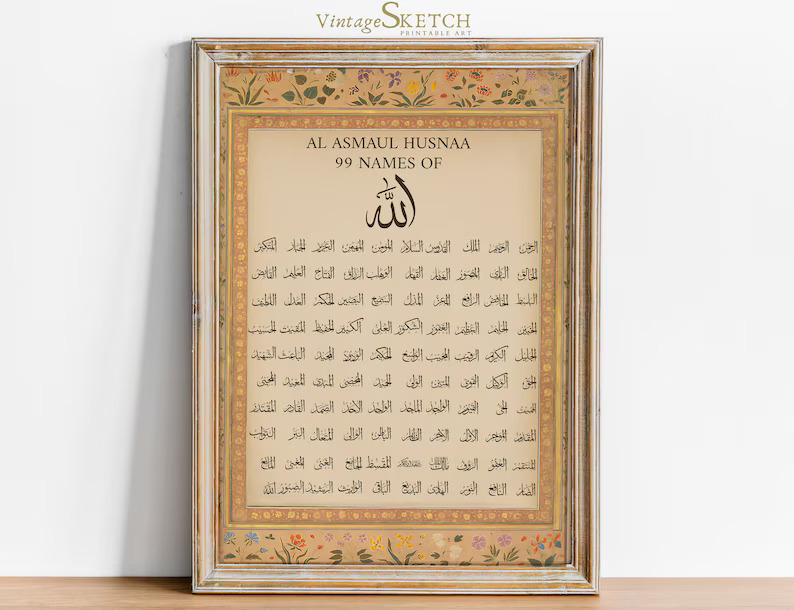 VintageSKETCH
PRINTABLE ART
AL ASMAUL HUSNAA
99 NAMES OF
الله
الرحمن الرحيم الملك القدوس السلام المؤمن المهيمن العزيز الجبار المتكبر
الخالق البارئ المصور الغفار القهار الوهاب الرزاق الفتاح العليم القابض
الباسط الخافض الرافع المعز المذل السميع البصير الحكم العدل اللطيف
الخبير الحليم العظيم الغفور الشكور العلي الكبير الحفيظ المقيت الحسيب
الجليل الكريم الرقيب المجيب الواسع الحكيم الودود المجيد الباعث الشهيد
الحق الوكيل القوي المتين الولي الحميد المحصي المبدئ المعيد المحيي
المميت الحي القيوم الواجد الماجد الواحد الاحد الصمد القادر المقتدر
المقدم المؤخر الأول الآخر الظاهر الباطن الوالي المتعال البر التواب
المنتقم العفو الرؤف مالك الملك المقسط الجامع الغني المغني المانع
الضار النافع النور الهادي البديع الباقي الوارث الرشيد الصبور الله